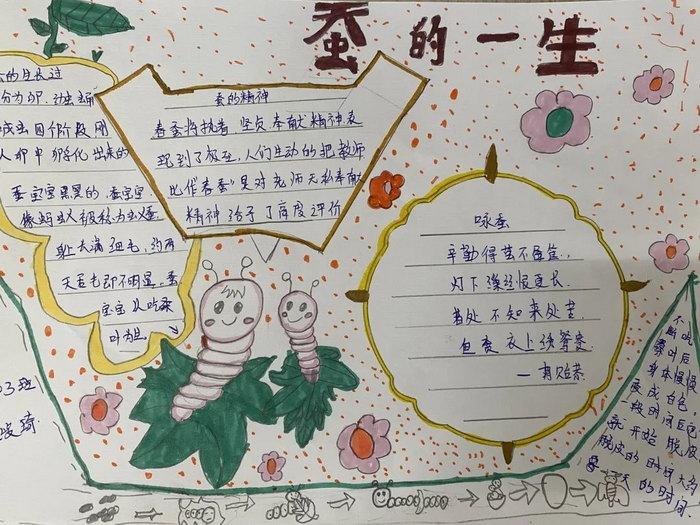 蚕的一生
的生长过
分为卵、幼虫、蛹
成虫四个阶段刚
从卵中孵化出来的
蚕宝宝黑黑的,蚕宝宝
像蚂蚁又被称为蚁蚕.
身上长满细毛,约两
天后毛即不明显,蚕
宝宝以吃桑
叶为生.
蚕的精神
春蚕将执着 坚贞奉献精神表
现到了极至,人们生动的把教师
比作春蚕"是对老师无私奉献
精神给予了高度评价
咏蚕
辛勤得茧不盈筐,
灯下缫丝恨更长.
着处 不知 来处 苦
但贪 衣上 绣鸳鸯.
不
断吃
桑叶后
身体慢慢
变成白色
一段时间后它
开始 脱皮
脱皮的时间大约
一天 的时间.
03班